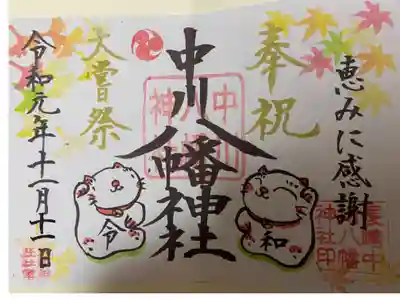 恵みに感謝
奉祝
中川八幡神社
大嘗祭
令和元年十一月十一日
和
令
長崎中
川八幡
神社印
中川
八幡
神社